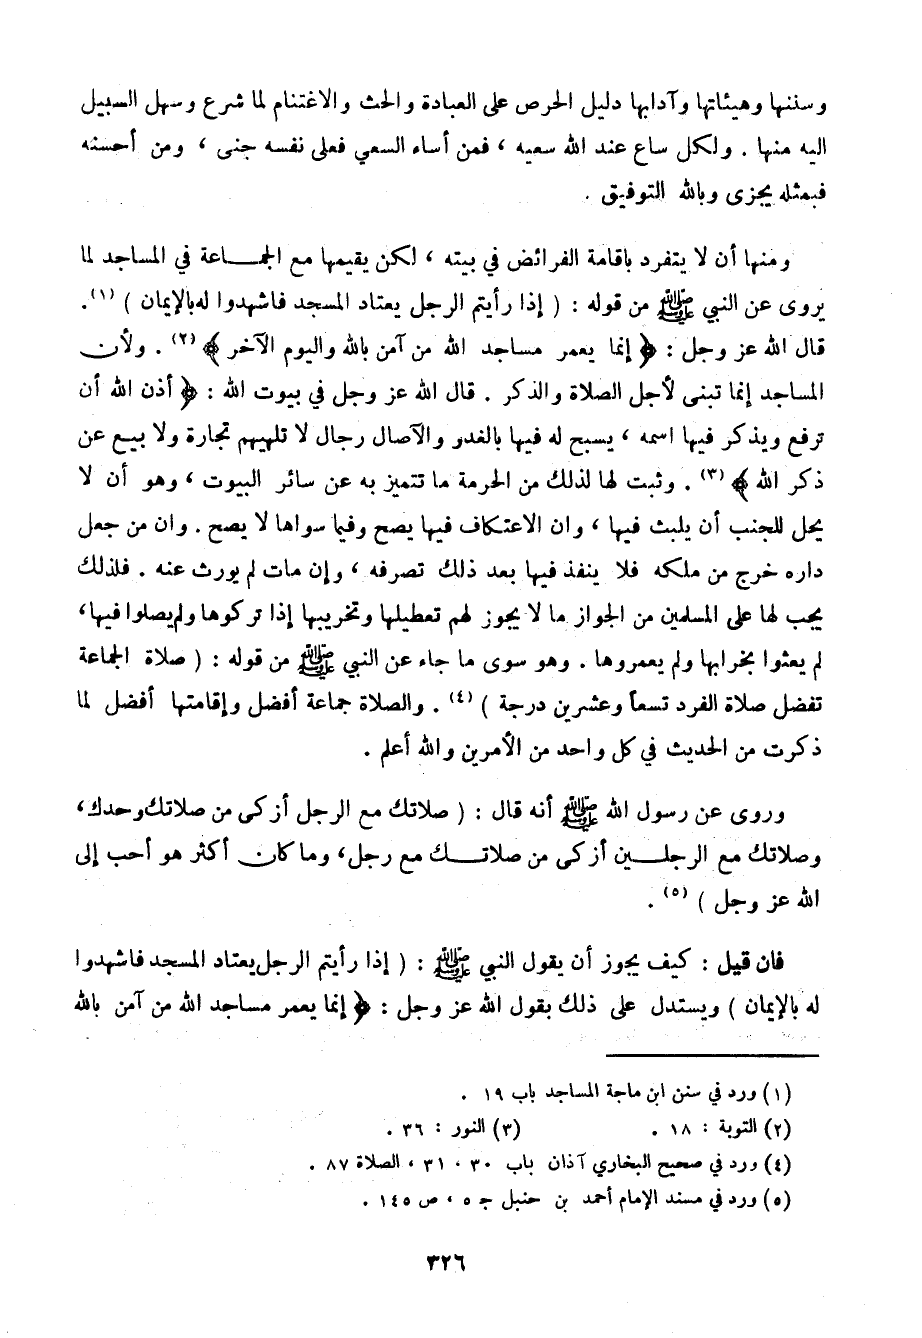 وسننها وهيئاتها وآدابها دليل الحرص على العبادة والحث والاغتنام لما شرع وسهل السبيل
اليه منها . ولكل ساع عند الله سعيه ، فمن أساء السعي فعلى نفسه جنى ، ومن أحسنه
فبمثله يجزى وبالله التوفيق .
ومنها أن لا يتفرد باقامة الفرائض في بيته ، لكن يقيمها مع الجمـــاعة في المساجد لما
يروى عن النبي ﷺ من قوله : ( إذا رأيتم الرجل يعتاد المسجد فاشهدوا له بالإيمان ) (١).
قال الله عز وجل : ﴿ إنما يعمر مساجد الله من آمن بالله واليوم الآخر ﴾ (٢) . ولأن
المساجد إنما تبنى لأجل الصلاة والذكر . قال الله عز وجل في بيوت الله : ﴿ أذن الله أن
ترفع ويذكر فيها اسمه ، يسبح له فيها بالغدو والآصال رجال لا تلهيهم تجارة ولا بيع عن
ذكر الله ﴾ (٣) . وثبت لها لذلك من الحرمة ما تتميز به عن سائر البيوت ، وهو أن لا
يحل للجنب أن يلبث فيها ، وان الاعتكاف فيها يصح وفيما سواها لا يصح . وان من جعل
داره خرج من ملكه فلا ينفذ فيها بعد ذلك تصرفه ، وإن مات لم يورث عنه . فلذلك
يجب لها على المسلمين من الجواز ما لا يجوز لهم تعطيلها وتخريبها إذا تركوها ولم يصلوا فيها ،
لم يعثوا بخرابها ولم يعمروها . وهو سوى ما جاء عن النبي ﷺ من قوله : ( صلاة الجماعة
تفضل صلاة الفرد تسعاً وعشرين درجة ) (٤) . والصلاة جماعة أفضل وإقامتها أفضل لما
ذكرت من الحديث في كل واحد من الأمرين والله أعلم .
وروى عن رسول الله ﷺ أنه قال : ( صلاتك مع الرجل أزكى من صلاتك وحدك ،
وصلاتك مع الرجلـــين أزكى من صلاتـــك مع رجل ، وما كان أكثر هو أحب إلى
الله عز وجل ) (٥) .
فان قيل : كيف يجوز أن يقول النبي ﷺ : ( إذا رأيتم الرجل يعتاد المسجد فاشهدوا
له بالإيمان ) ويستدل على ذلك بقول الله عز وجل : ﴿ إنما يعمر مساجد الله من آمن بالله
(١) ورد في سنن ابن ماجة المساجد باب ١٩ .
(٢) التوبة : ١٨ . (٣) النور : ٣٦ .
(٤) ورد في صحيح البخاري آذان باب ٣٠ ، ٣١ ، الصلاة ٨٧ .
(٥) ورد في مسند الإمام أحمد بن حنبل جـ ٥ ، ص ١٤٥ .
٣٢٦